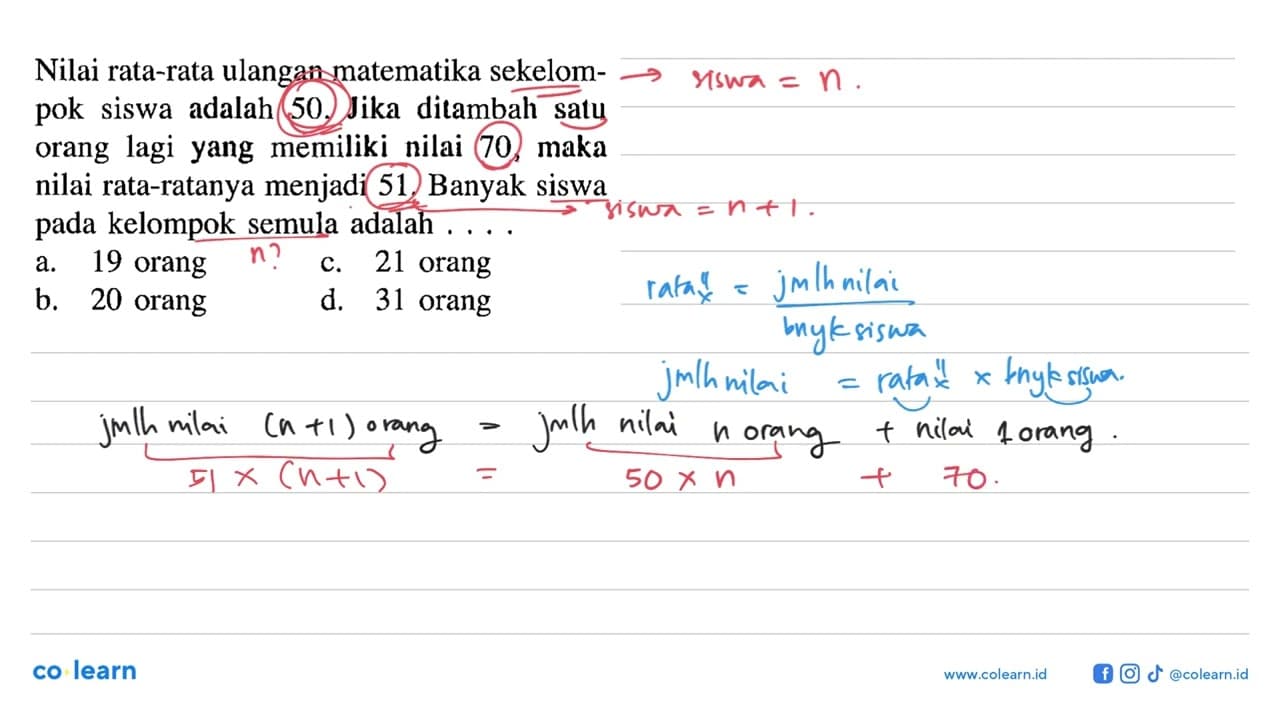 Nilai rata-rata ulangan matematika sekelom-
pok siswa adalah 50. Jika ditambah satu
orang lagi yang memiliki nilai 70, maka
nilai rata-ratanya menjadi 51. Banyak siswa
pada kelompok semula adalah . . . .
a. 19 orang
c. 21 orang
b. 20 orang
d. 31 orang
siswa = n.
siswa = n + 1.
n?
rata" = jmlh nilai
bnyk siswa
jmlh nilai = rata" x bnyk siswa.
jmlh nilai (n+1) orang = jmlh nilai n orang + nilai 1 orang.
51 x (n+1) = 50 x n + 70.
co learn
www.colearn.id
@colearn.id